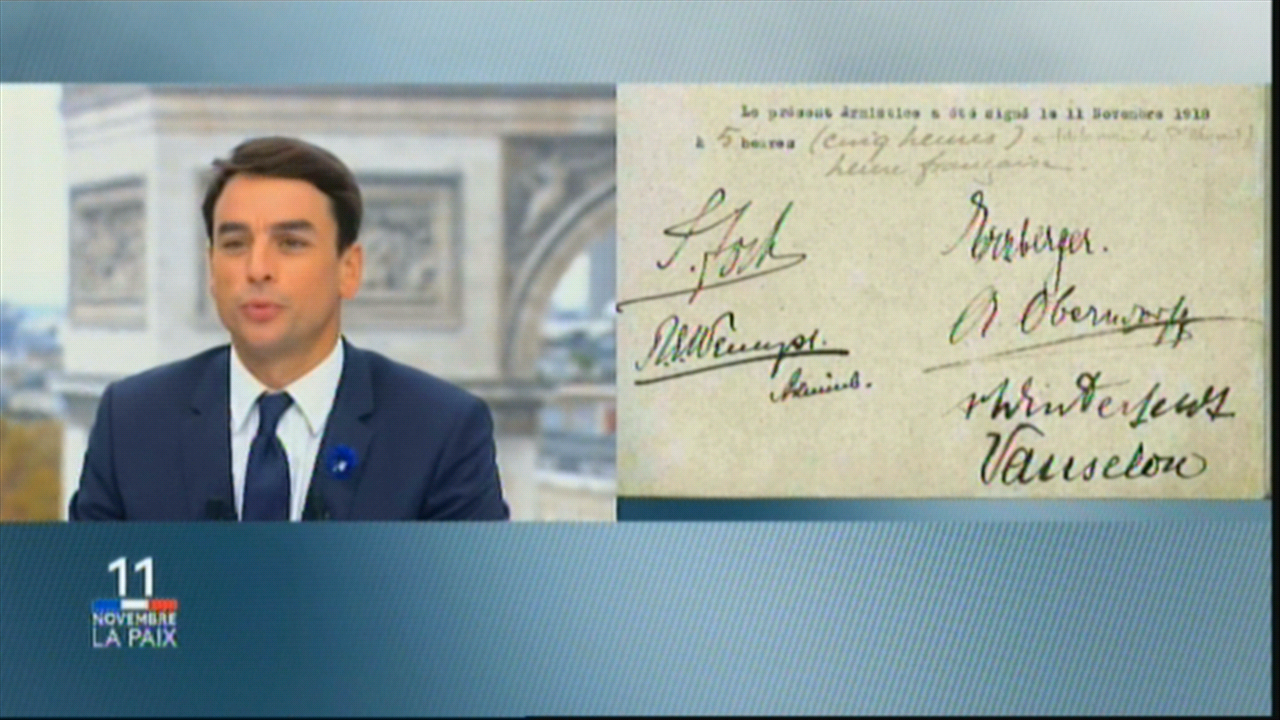 Le présent Armistice a été signé le 11 Novembre 1918
à 5 heures (cinq heures)
heure française.
F. Foch
Erzberger.
R. E. Wemyss.
A. Oberndorff
Admiral.
vWinterfeldt
Vanselow
11
NOVEMBRE
LA PAIX